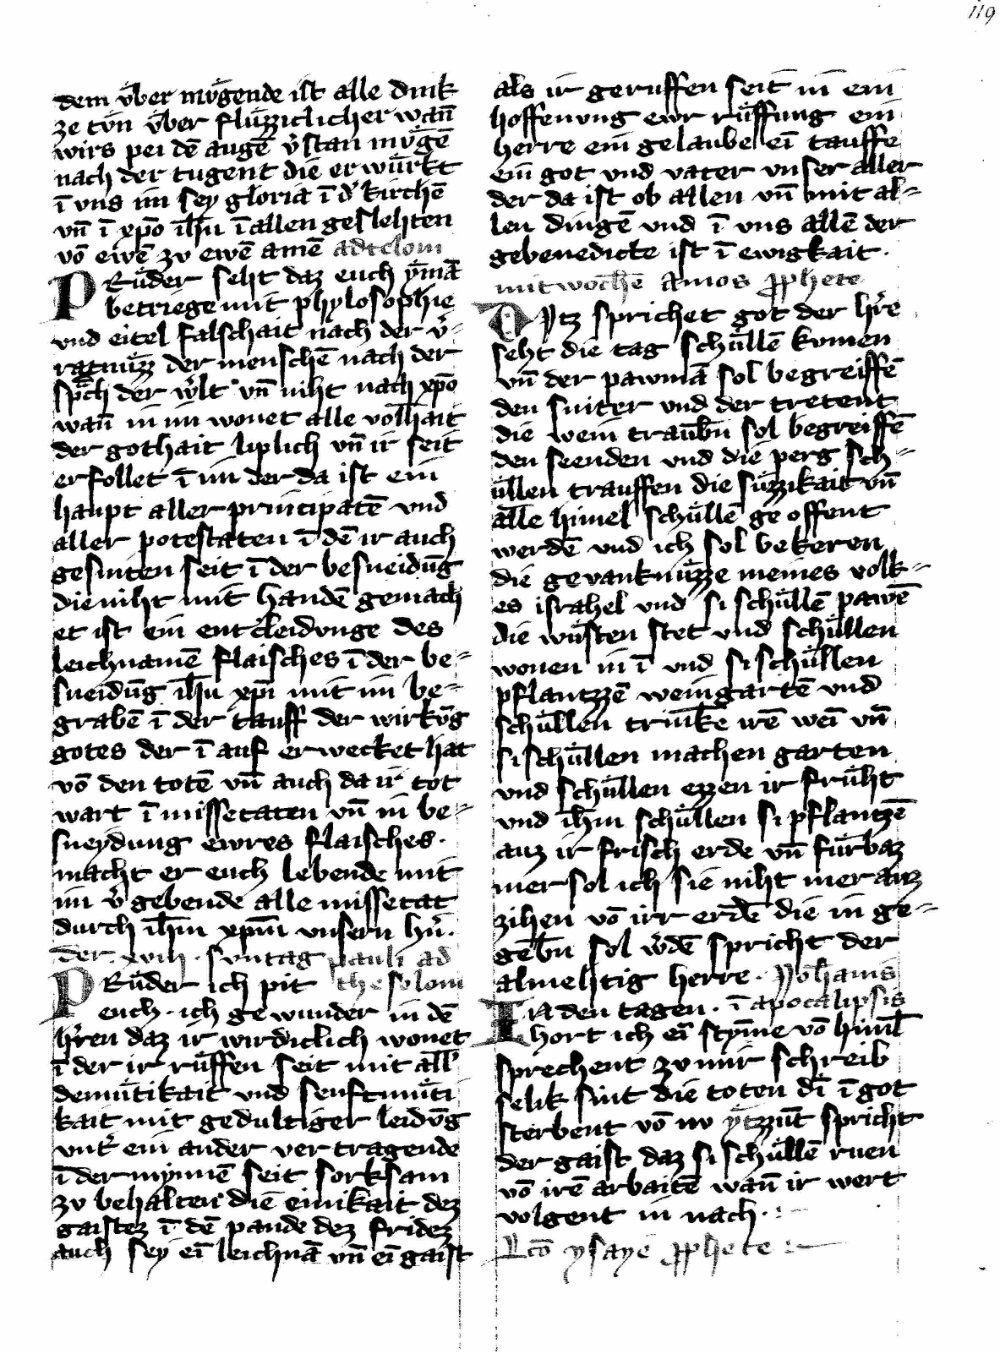 119
dem v̈ber mv̈gende ist alle dink
ze tv̈n v̈ber flüzzichlicher wañ
wirs pei dē augē v̉stan mv̈gē
nach der tugent die er würkt
ī vns im sey gloria ī d̉ kirchē
vñ ī xp̄o ih̄u ī allen geslehten
vō ewē zv ewē amē ad colom
PRüder seht daz euch ẏmā
betriege mit phylosophie
vnd eitel falschait nach der v̉-
ratnüzz der menschē nach der
sp̄ch der w̉lt vñ niht nach xp̄o
wañ in im wonet alle volhait
der gothait liplich vñ ir seit
erfollet ī im der da ist ein
haupt aller principatē vnd
aller potestaten ī dē ir auch
gesniten seit ī der besneidūg
die niht mit handē gemach
et ist ein entcleidvnge des
leichnamē flaisches ī der be-
sneidūg ih̄u xp̄i mit im be-
grabē ī der tauff der wirkūg
gotes der ī auf erwecket hat
vō den totē vñ auch da ir tot
wart ī missetaten vñ in be-
sneydung ewres flaisches.
macht er euch lebende mit
im v̉gebende alle missetat
durch ih̄m xp̄m vnsern hr̉.
der xviij. svntag pauli ad
PRüder ich pit thesolom
euch. ich gewunder in dē
hr̉ren daz ir wirdiclich wonet
ī der ir rüffen seit mit all̉
demütikait vnd senftmüti
kait mit gedultiger leidūg
vnt̉ ein ander ver tragende
ī der mynnē seit sorksam
zv behalten die einikait dez
gaistez ī dē pande dez fridez
auch sey eī leichnā vñ eī gaist
als ir geruffen seit in ein
hoffenvng ewr rüffung ein
herre ein gelaube eī tauffe
ein got vnd vater vnser aller
der da ist ob allen vñ mit al-
len dingē vnd ī vns allē der
gebenedicte ist ī ewigkait.
mitwochē Amos pphete
DJtz sprichet got der hr̉re
seht die tag schüllē kvmen
vñ der pawmā sol begreiffē
den sniter vnd der tretent
die wein traub̄n sol begreiffē
den seenden vnd die perg sch-
üllen trauffen die süzzikait vñ
alle himel schüllē ge offent
werdē vnd ich sol bekeren
die gevanknüzze meines volk-
es israhel vnd si schüllē pawē
die wüsten stet vnd schüllen
wonen in ī vnd si schüllen
pflantzzē weingartē vnd
schüllen trinkē irē weī vñ
si schüllen machen garten
vnd schüllen ezzen ir früht
vnd ih̄m schüllen si pflantzē
auz ir frisch erde vñ fürbaz
mer sol ich sie niht mer auz
zihen vō irr erdē die in ge-
geb̄n sol w̉dē spricht der
almehtig herre. Johānis
IN den tagen. ī apocalipsis
hort ich eī stymme vō himl̄
sprechent zv mir schreib
selik sint die toten dī ī got
sterbent vō nv ÿtzzūt spricht
der gaist daz si schüllē rven
vō irē arbaitē wañ ir wert
volgent in nach.
Lcō ysaye pphete